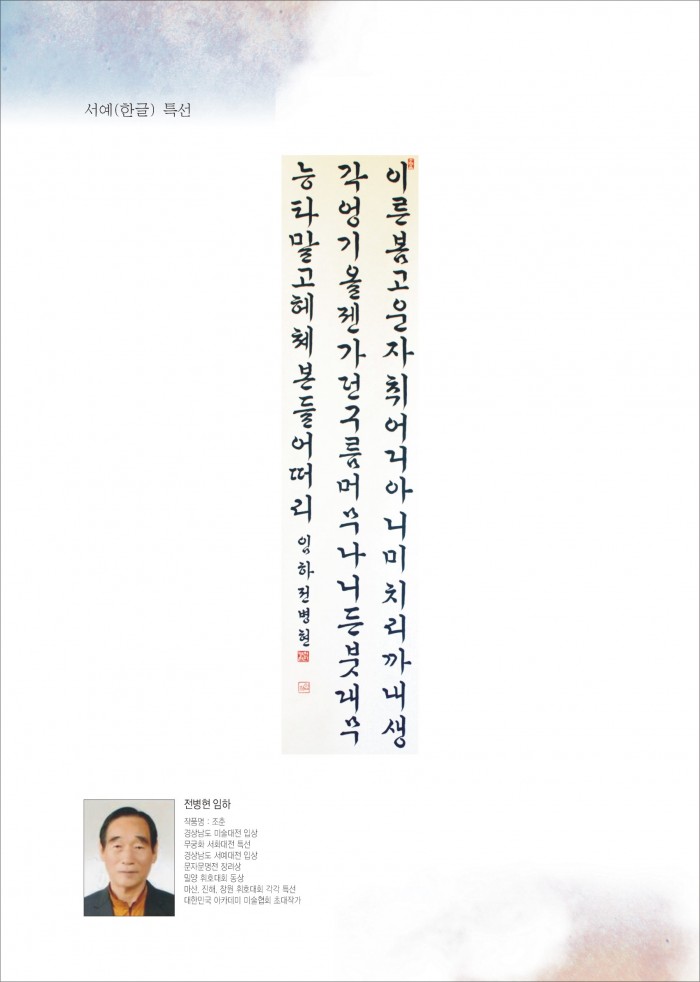 서예(한글) 특선
이른봄고운자취어디아니미치리까내생
각엉기올젠가던구름머무나니든붓대무
능타말고헤쳐본들어떠리 임하전병현
전병현 임하
작품명 : 조춘
경상남도 미술대전 입상
무궁화 서화대전 특선
경상남도 서예대전 입상
문자문명전 장려상
밀양 휘호대회 동상
마산, 진해, 창원 휘호대회 각각 특선
대한민국 아카데미 미술협회 초대작가